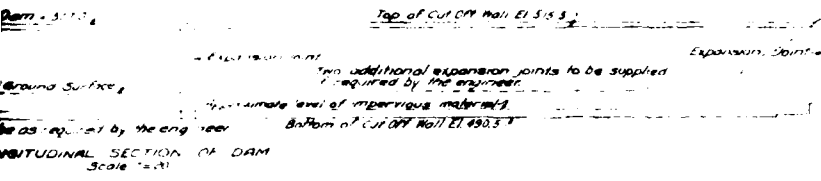 Dam Top of Cut Off Wall El. 515.5
Expansion Joint Expansion Joint
Two additional expansion joints to be supplied
if required by the engineer.
Ground Surface
Approximate level of impervious material
be as required by the engineer Bottom of Cut Off Wall El. 490.5
LONGITUDINAL SECTION OF DAM
Scale 1"=20'